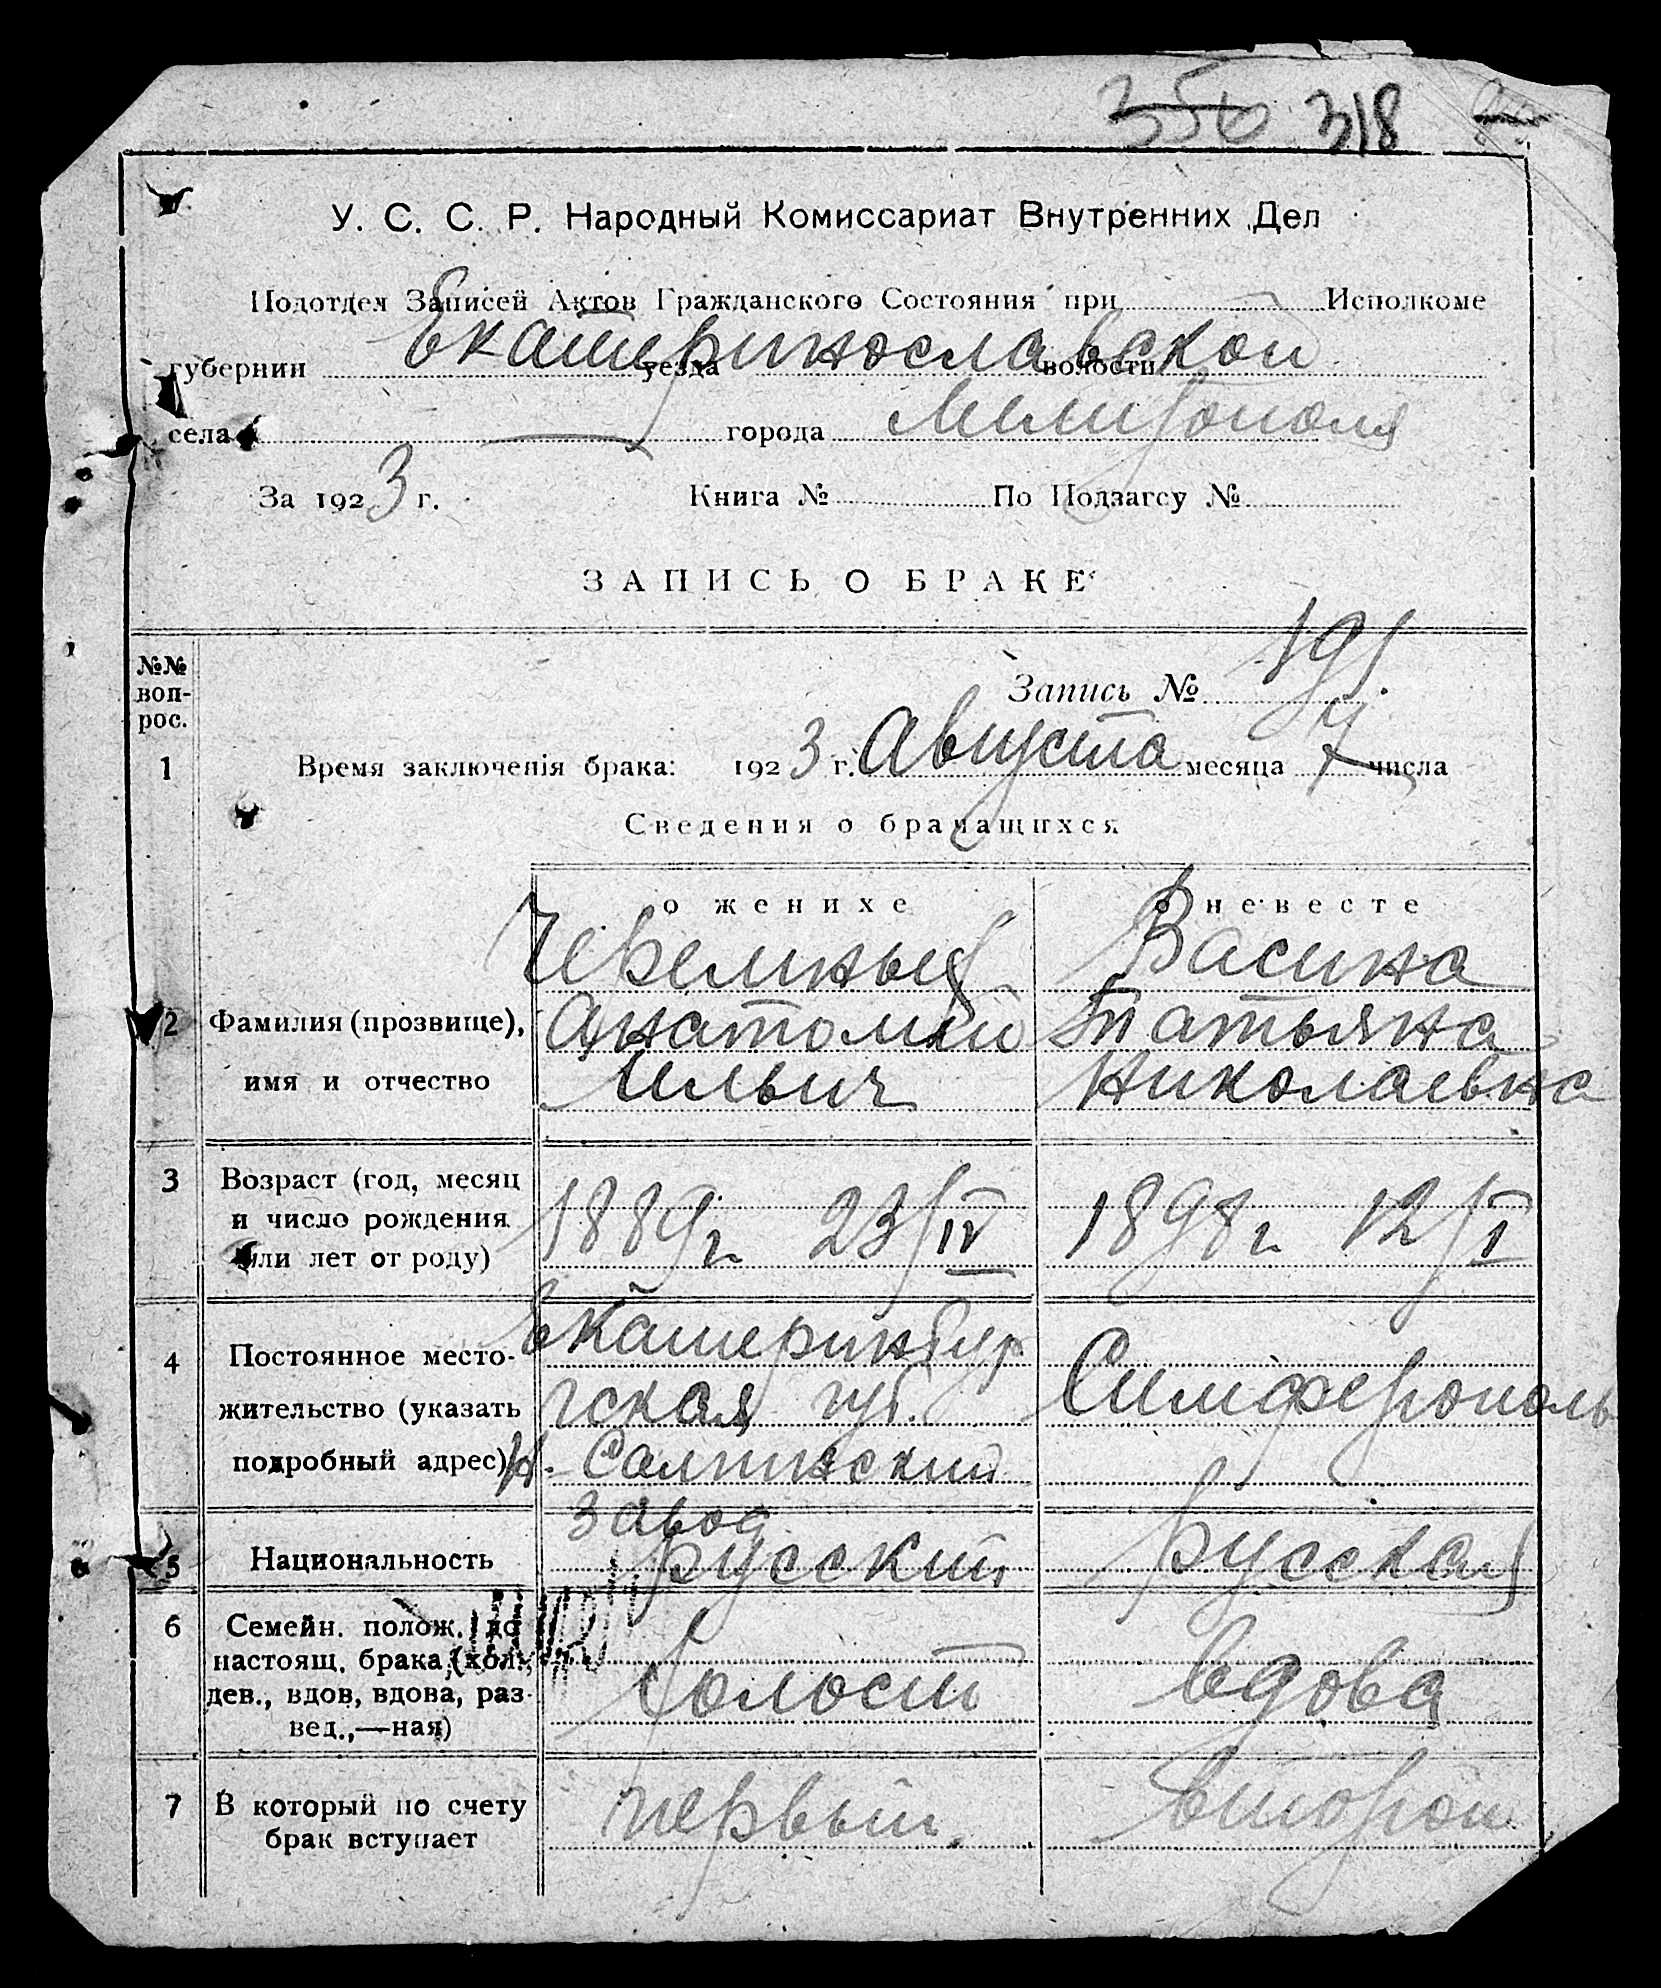 356 318
У. С. С. Р. Народный Комиссариат Внутренних Дел
Подотдел Записей Актов Гражданского Состояния при Исполкоме
губернии Екатеринославской уезда волости
села города Мелитополя
За 1923 г. Книга № По Подзагсу №
ЗАПИСЬ О БРАКЕ
№№ воп-рос.
Запись № 191.
1 Время заключенія брака: 1923 г. Августа месяца 7 числа
Сведения о брачащихся
о женихе о невесте
Черемных Васина
2 Фамилия (прозвище), Анатолий Татьяна
имя и отчество Ильич Николаевна
3 Возраст (год, месяц
и число рождения 1889 г. 23/IV 1898 г. 12/I
или лет от роду)
Екатеринбур
4 Постоянное место-
жительство (указать гская губ. Симферополь
подробный адрес) Н. Салдинский
завод
5 Национальность русский русская
6 Семейн. полож. до
настоящ. брака (хол.,
дев., вдов, вдова, раз- холост вдова
вед.,—ная)
7 В который по счету первый. второй
брак вступает